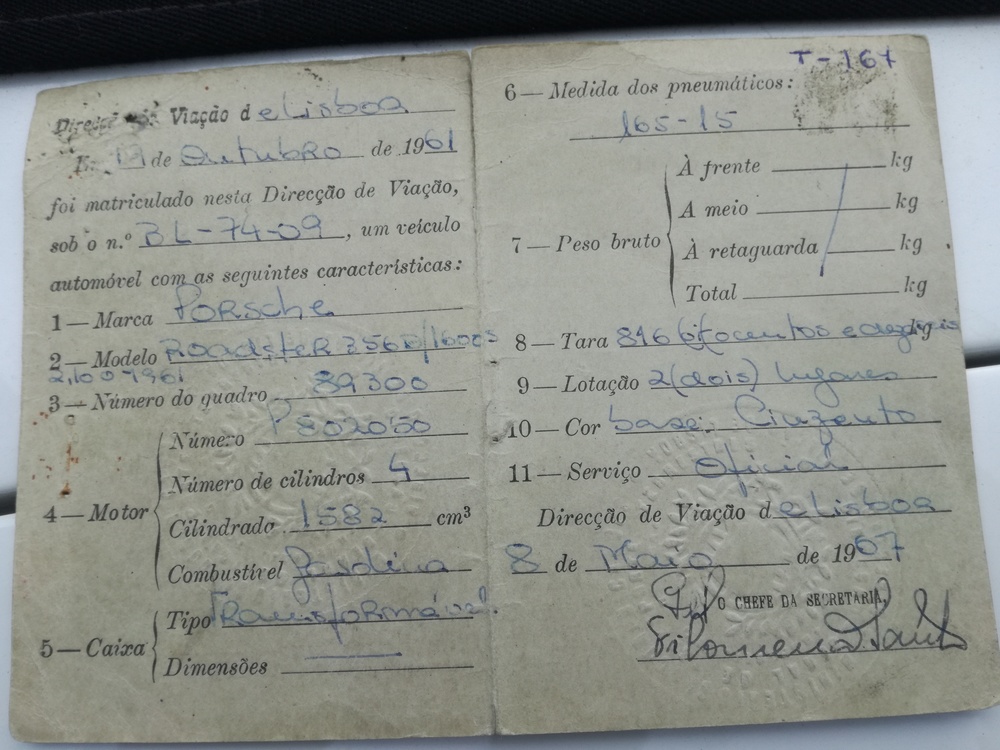 Direcção de Viação de Lisboa
de Outubro de 1961
foi matriculado nesta Direcção de Viação,
sob o n.º BL-74-09, um veículo
automóvel com as seguintes características:
1 — Marca Porsche
2 — Modelo Roadster 356B/1600S
3 — Número do quadro 89300
4 — Motor
Número P802050
Número de cilindros 4
Cilindrada 1582 cm³
Combustível gasolina
5 — Caixa
Tipo Transformável
Dimensões
T-167
6 — Medida dos pneumáticos:
165-15
7 — Peso bruto
À frente kg
A meio kg
À retaguarda kg
Total kg
8 — Tara 816 kg
9 — Lotação 2 (dois) lugares
10 — Cor base: Cinzento
11 — Serviço Oficial
Direcção de Viação de Lisboa
8 de Maio de 1967
O CHEFE DA SECRETARIA,